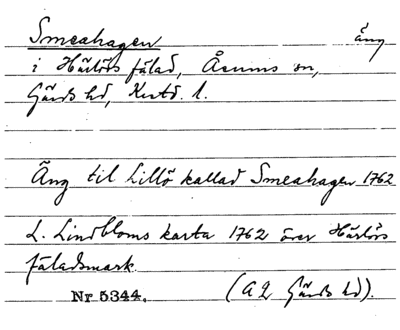 Smeahagen äng
i Härlövs fälad, Åsums sn,
Gärds hd, Krstd. l.
Äng til Lillö kallad Smeahagen 1762
L. Lindbloms karta 1762 över Härlövs
fäladsmark.
Nr 5344. (A2 Gärds hd).